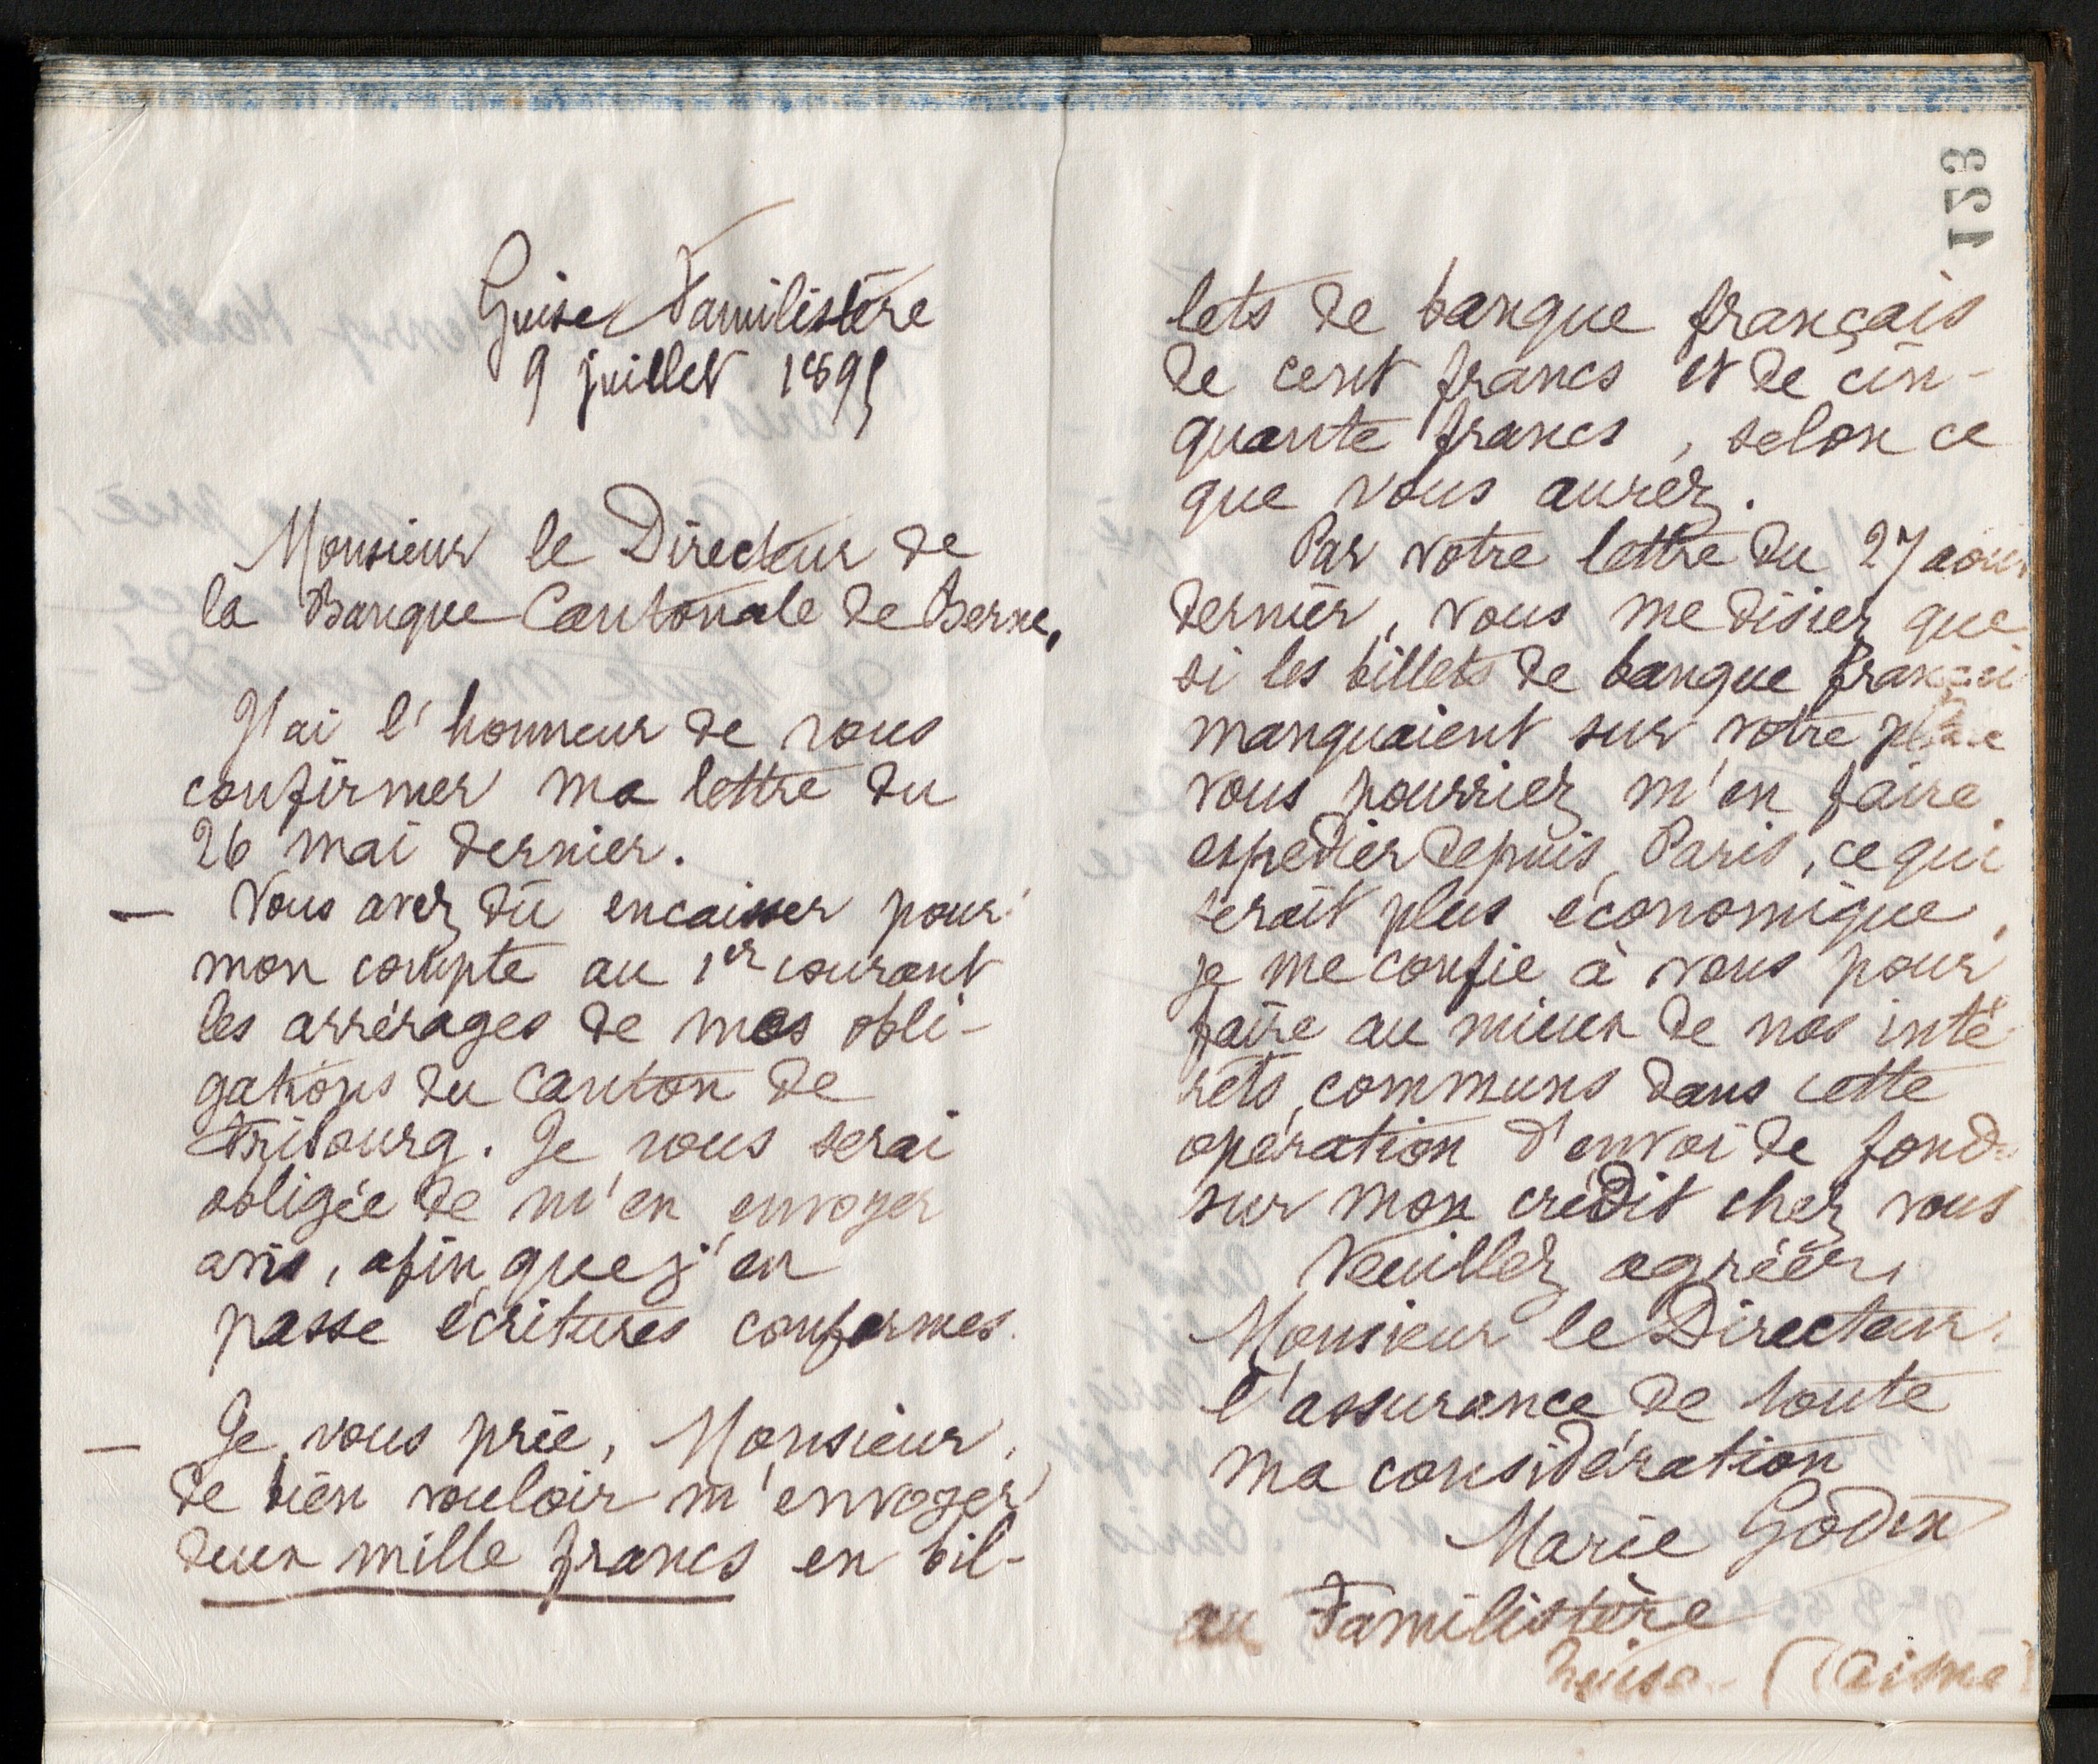 Guise Familistère
9 juillet 1895
Monsieur le Directeur de
la Banque Cantonale de Berne,
J'ai l'honneur de vous
confirmer ma lettre du
26 mai dernier.
— Vous avez dû encaisser pour
mon compte au 1er courant
les arrérages de mes obli-
gations du Canton de
Fribourg. Je vous serai
obligée de m'en envoyer
avis, afin que j'en
passe écritures conformes.
— Je vous prie, Monsieur,
de bien vouloir m'envoyer
deux mille francs en bil-
153
lets de banque français
de cent francs et de cin-
quante francs, selon ce
que vous aurez.
Par votre lettre du 27 aoû
dernier, vous me disiez que
si les billets de banque françai
manquaient sur votre place
vous pourriez m'en faire
expédier depuis Paris, ce qui
serait plus économique,
je me confie à vous pour
faire au mieux de nos inté
rêts communs dans cette
opération d'envoi de fonds
sur mon crédit chez vous
Veuillez agréer,
Monsieur le Directeur,
l'assurance de toute
ma considération
Marie Godin
au Familistère
Guise (Aisne)